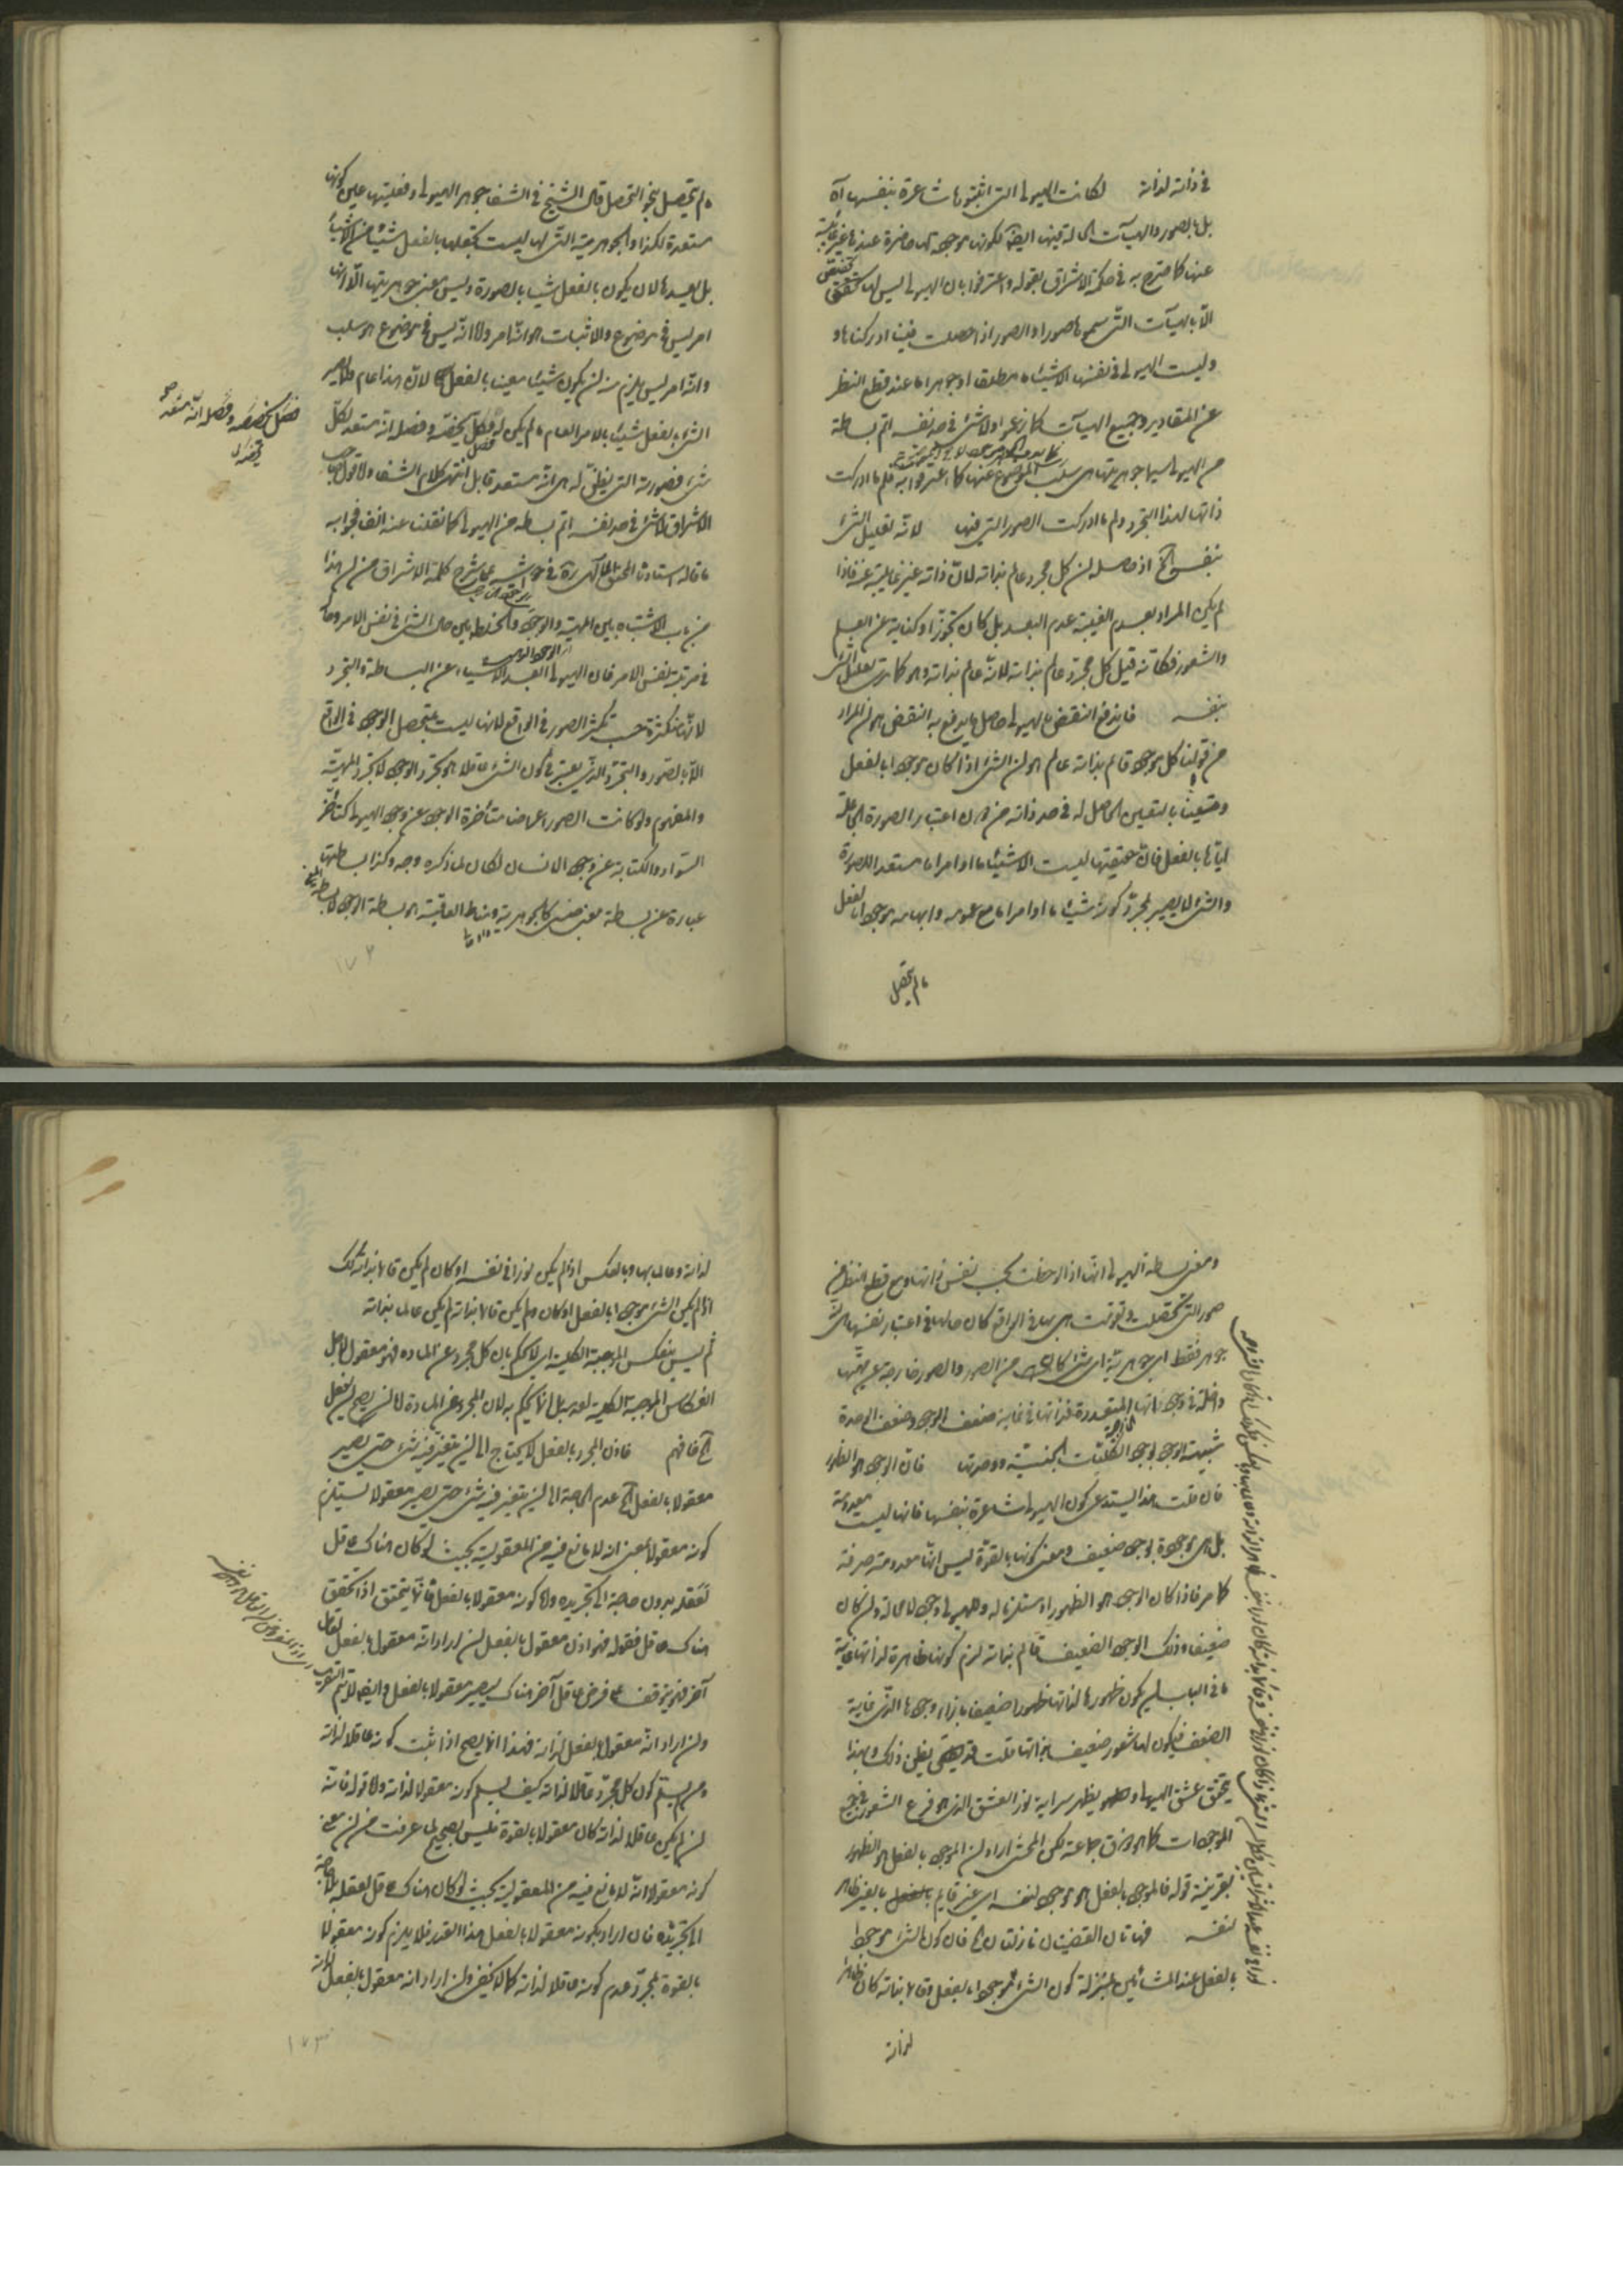 في ذاته لذاته لكانت الهيولى التي اثبتوها شاعرة بنفسها آه
بل بالصور والهيآت الحالة فيها ايضا لكونها موجودة لها حاضرة عندها غير غايبة
عنها كما صرح به في حكمة الاشراق بقوله واعترفوا بان الهيولى ليس لها تخصص
الّا بالهيآت التي سموها صورا والصور اذا حصلت فينا ادركناها و
وليست الهيولى في نفسها الا شيئا ما مطلقا او جوهرا ما عند قطع النظر
عن المقادير وجميع الهيآت كما زعموا ولا شئ في حد نفسه اتم بساطة
من الهيولى سيما جوهريتها هي سلب الموضوع عنها كما اعترفوا به فلم ما ادركت
ذاتها لهذا التجرد ولم ما ادركت الصور التي فيها لانه تعليل الشئ
بنفسه الخ اذ حاصله ان كل مجرد عالم بذاته لان ذاته غير غايبة عنه فاذا
لم يكن المراد بعدم الغيبة عدم البعد بل كان تجوزا وكناية عن العلم
والشعور فكأنه قيل كل مجرد عالم بذاته لانه عالم بذاته وهو كما ترى تعليل الشئ
بنفسه فاندفع النقض بالهيولى حاصل ما يدفع به النقض هو ان المراد
من قولنا كل موجود قائم بذاته عالم هو ان الشئ اذا كان موجودا بالفعل
ومتعينا بالتعين الحاصل له في حد ذاته من دون اعتبار الصورة الجاعلة
اياها بالفعل فان حقيقتها ليست الا شيئا ما او امرا ما مستعدا للصورة
والشئ لا يصير بمجرد كونه شيئا ما او امرا ما مع عمومه وابهامه موجودا بالفعل
ما لم يتحصل
ما لم يتحصل بنحو التحصل قال الشيخ في الشفا جوهر الهيولى وفعليتها هي كونها
مستعدة لكذا والجوهرية التي لها ليست تجعلها بالفعل شيئا من الاشياء
بل يعدها لان يكون بالفعل شيئا بالصورة وليس معنى جوهريتها الّا انها
امر ليس في موضوع والاثبات هو انه امر واما انه ليس في موضوع هو سلب
وانه امر ليس يلزم منه ان يكون شيئا معينا بالفعل لان هذا عام ولا يصير
الشئ بالفعل شيئا بالامر العام ما لم يكن له فصل يخصه وفصله انه مستعد لكل
شئ فصورته التي يظن له هي انه مستعد قابل انتهى كلام الشفا واما قول صاحب
الاشراق لا شئ في حد نفسه اتم بساطة من الهيولى كما نقلنا عنه آنفا فجوابه
ما قاله استادنا المحقق المتاله ره في حواشيه على شرح حكمة الاشراق من ان هذا
من باب الاشتباه بين المهية والوجود والخلط بين حال الشئ في نفس الامر وحاله
في مرتبة نفس الامر فان الهيولى ابعد الاشياء عن البساطة والتجرد
لانها متكثرة حسب تكثر الصور في الواقع لانها ليست بمتحصل الوجود في الواقع
الّا بالصور والتجرد الذي يعتبر في كون الشئ عاقلا هو تجرد الوجود لا تجرد المهية
والمفهوم ولو كانت الصور اعراضا متأخرة الوجود عن وجود الهيولى كتأخر
السواد والكتابة عن وجود الانسان لكان لما ذكره وجه وكذا بساطتها
عبارة عن بساطة معنى جنسي كالجوهرية ومناط العاقلية هو بساطة الوجود لا بساطة المعنى
فصل يخصه وفصله انه مستعد
١٧٢
ومعنى بساطة الهيولى انها اذا لوحظت بحسب نفس ذاتها ومع قطع النظر عن
صور التي تحصلت وتقومت هي بها في الواقع كان حالها في اعتبار نفسها هي انها
جوهر فقط اي جوهرية اي شئ كان من الصور والصور خارجة عن مهيتها
داخلة في وجوداتها المتعددة فذاتها في غاية ضعف الوجود وضعف الوحدة
شبيهة الوجود بوجود الكليات الجنسية ووحدتها فان الوجود هو الظهور
فان قلت هذا يستدعي كون الهيولى شاعرة بنفسها فانها ليست معدومة
بل هي موجودة بوجود ضعيف ومعنى كونها بالقوة ليس انها معدومة صرفة
كما مر فاذا كان الوجود هو الظهور او مستلزما له وللهيولى وجود لا محالة وان كان
ضعيفا وذلك الوجود الضعيف قائم بذاته لزم كونها ظاهرة لذاتها غاية
ما في الباب ان يكون ظهورها لذاتها ظهورا ضعيفا بازاء وجودها الذي في غاية
الضعف فيكون لها شعور ضعيف بذاتها قلت قد يظن ذلك وبهذا
يتحقق عشق الهيولى ويظهر سراية نور العشق الذي هو فرع الشعور في جميع
الموجودات كما هو ذوق جماعة لكن المحشي اراد ان الموجود بالفعل هو الظهور
بقرينة قوله فالموجود بالفعل هو موجود لنفسه اي غير قايم بالغير ظاهر
لنفسه فهاتان القضيتان نازلتان الخ فان كون الشئ موجودا
بالفعل عند المشائين بمنزلة كون الشئ موجودا بالفعل وقائما بذاته كان ظاهرا
لذاته
لذاته وعالما بها وبالعكس اذا لم يكن نورا في نفسه او كان لم يكن قائما بذاته كذلك
اذا لم يكن الشئ موجودا بالفعل او كان ولم يكن قائما بذاته لم يكن عالما بذاته
ثم ليس ينعكس الموجبة الكلية اي لا يحكم بان كل مجرد عن المادة فهو معقول لاجل
انعكاس الموجبة الكلية بل انما يحكم به لان المجرد عن المادة اما ان يصح ان يعقل
الخ فافهم فاذن المجرد بالفعل لا يحتاج الى ان يتغير فيه شئ حتى يصير
معقولا بالفعل الخ عدم الحاجة الى ان يتغير فيه شئ حتى يصير معقولا يستلزم
كونه معقولا بمعنى انه لا مانع فيه من المعقولية بحيث لو كان هناك عاقل
لعقله بدون حاجة الى تجريده واما كونه معقولا بالفعل فانما يتحقق اذا تحقق
هناك عاقل فقوله فهو اذن معقول بالفعل ان اراد انه معقول بالفعل لعاقل
آخر فهو يتوقف على فرض عاقل آخر هناك ليصير معقولا بالفعل وايضا لا يتم التقريب
وان اراد انه معقول بالفعل لذاته فهذا انما يصح اذا ثبت كونه عاقلا لذاته
ومن لم يسلم كون كل مجرد عاقلا لذاته كيف يسلم كونه معقولا لذاته واما قوله فانه
ان لم يكن عاقلا لذاته كان معقولا بالقوة فليس بصحيح لما عرفت من ان معنى
كونه معقولا انه لا مانع فيه من المعقولية بحيث لو كان هناك عاقل لعقله بلا حاجة
الى تجريده فان اراد بكونه معقولا بالفعل هذا القدر فلا يلزم كونه معقولا
بالقوة بمجرد عدم كونه عاقلا لذاته كما لا يخفى وان اراد انه معقول بالفعل لذاته
١٧٣